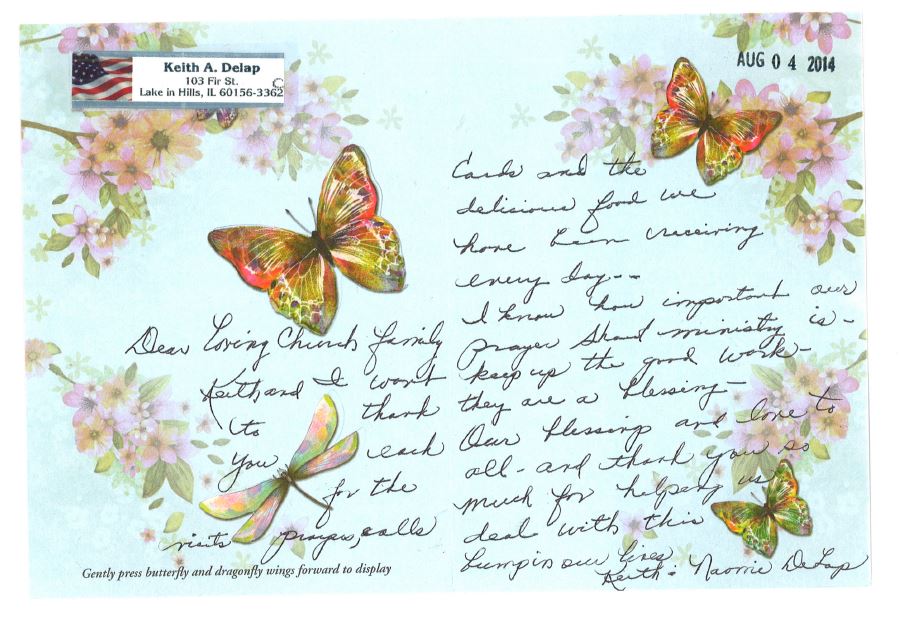 Keith A. Delap
103 Fir St.
Lake in Hills, IL 60156-3362
AUG 04 2014
Dear Loving Church family
Keith and I want
to thank
you each
for the
visits prayers, calls
Gently press butterfly and dragonfly wings forward to display
Cards and the
delicious food we
have been receiving
every day--
I know how important our
prayer Shawl ministry is-
keep up the good work-
they are a blessing-
Our blessings and love to
all- and thank you so
much for helping us
deal with this
bump in our lives
Keith & Naomi DeLap